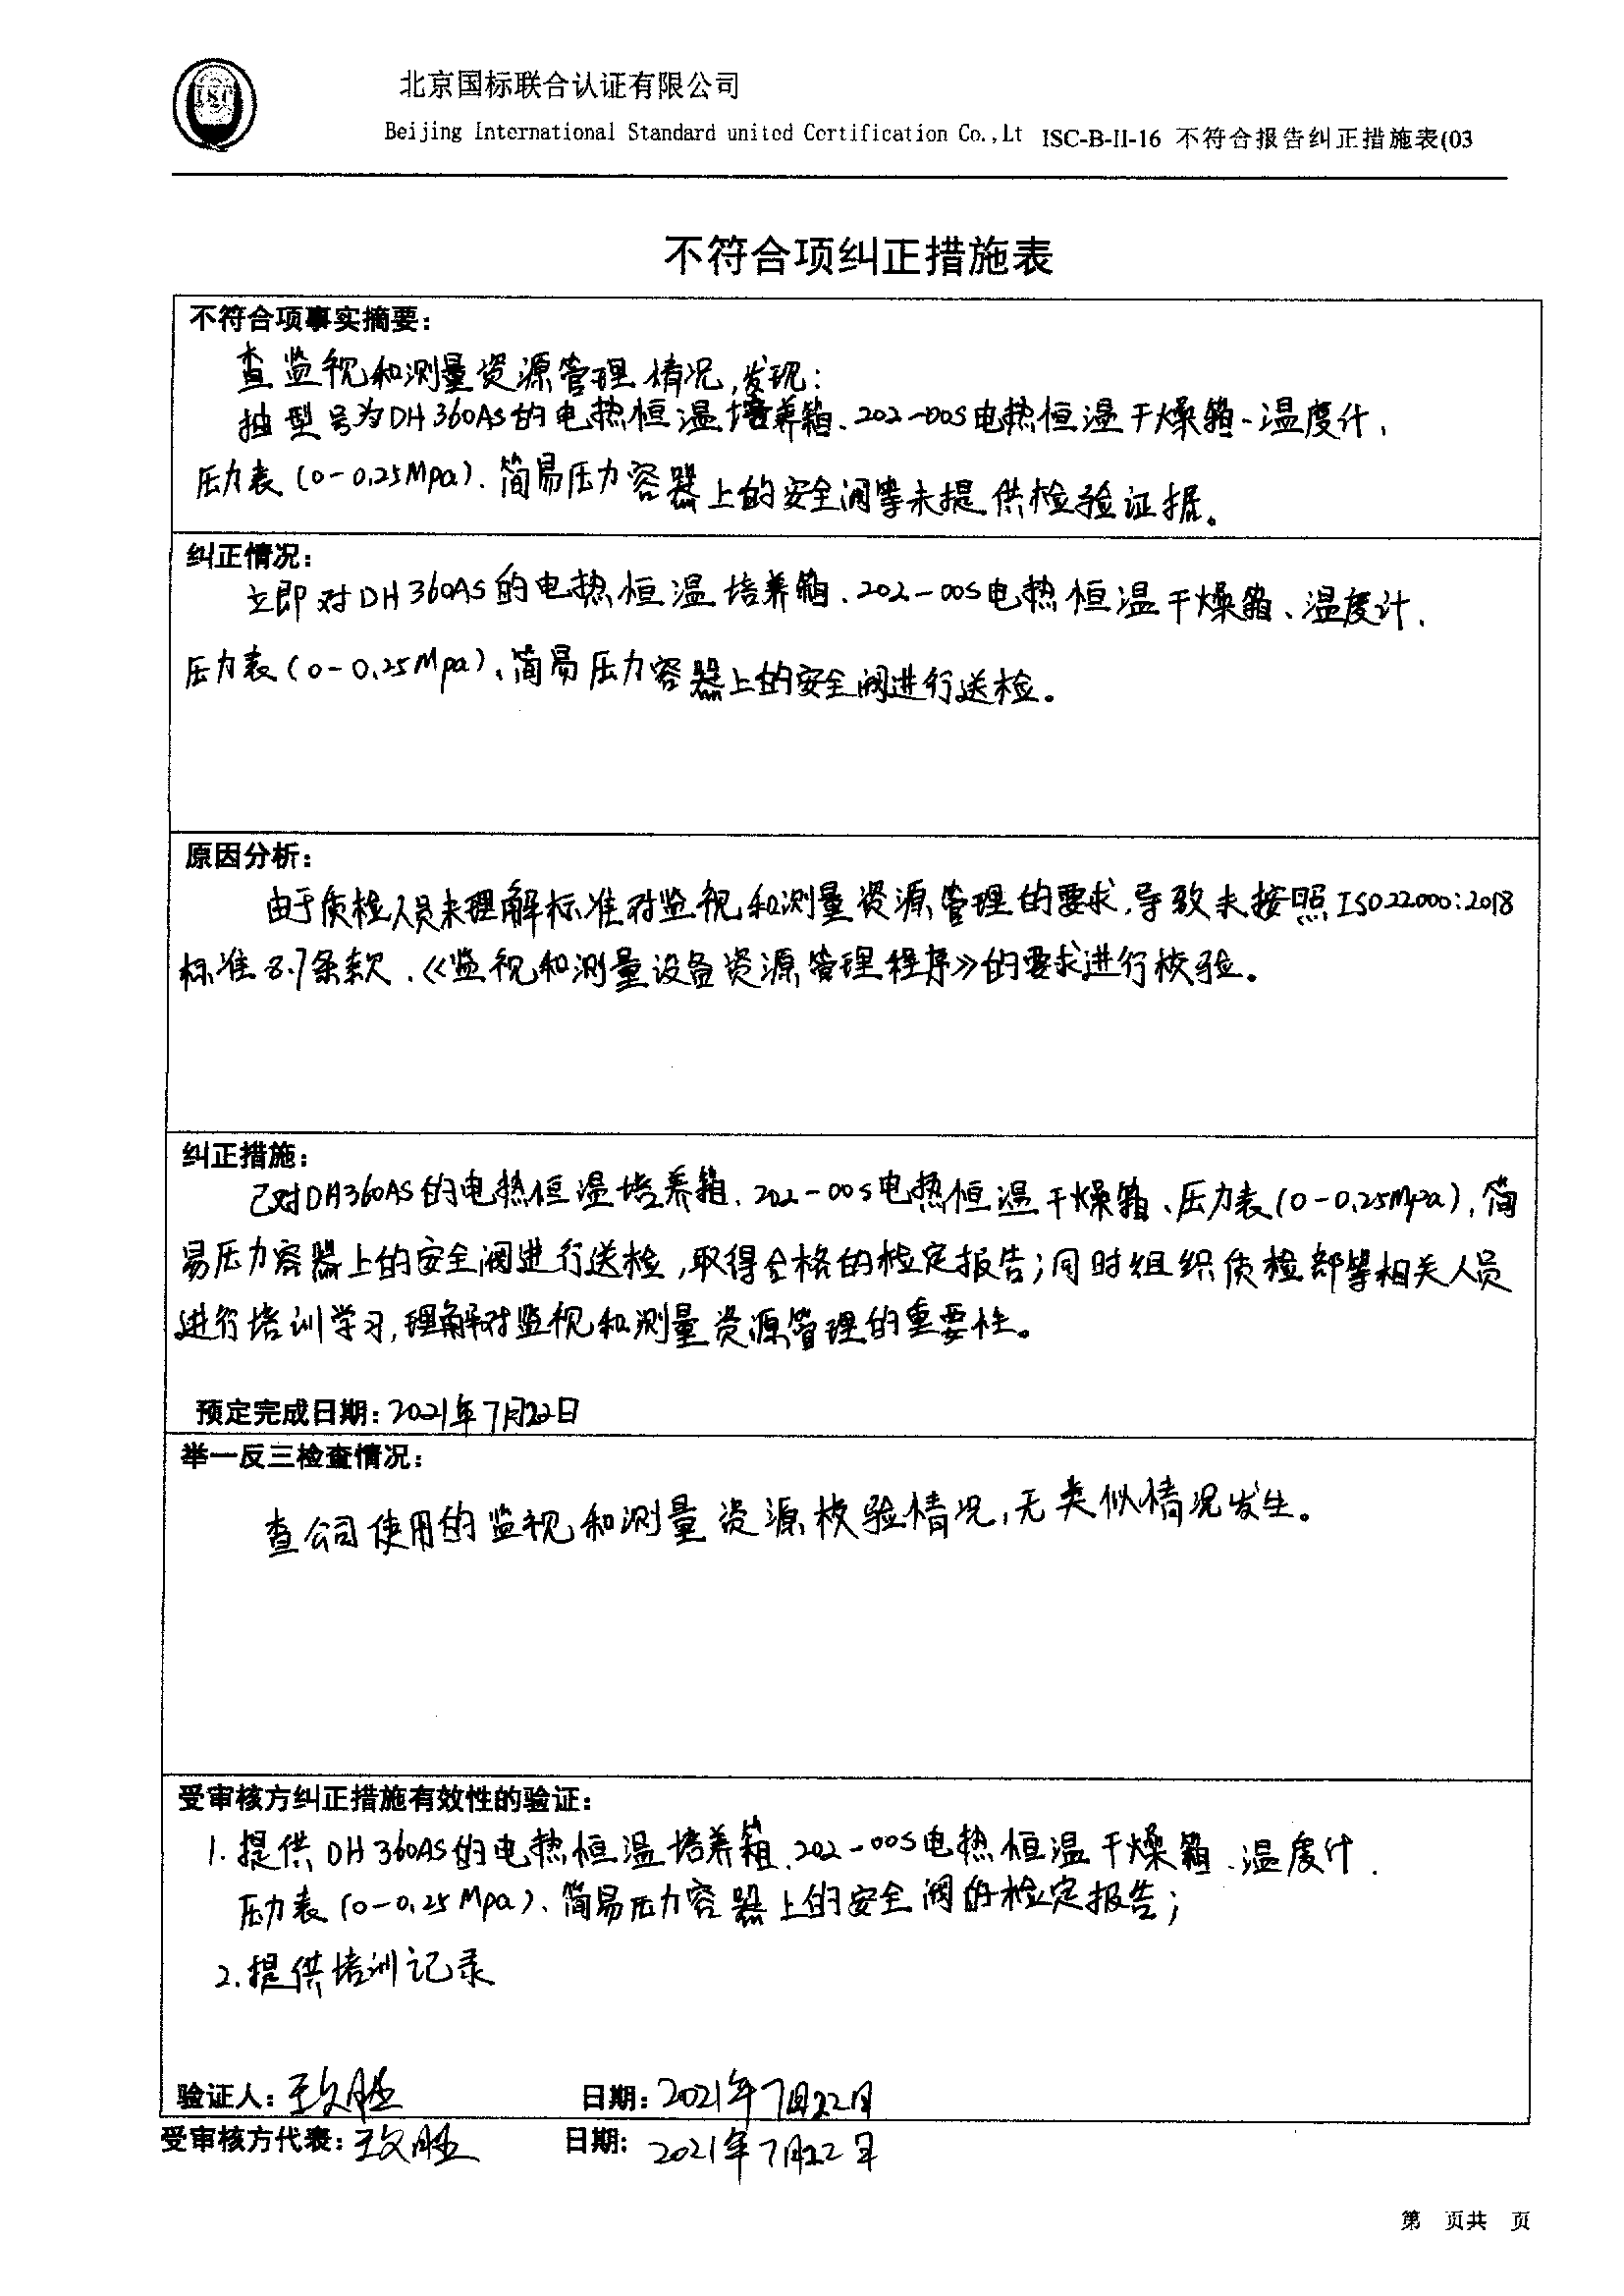 ISC
北京国标联合认证有限公司
Beijing International Standard united Certification Co.,Lt ISC-B-II-16 不符合报告纠正措施表(03
不符合项纠正措施表
不符合项事实摘要:
查监视和测量资源管理情况,发现:
抽型号为DH360AS的电热恒温培养箱、202-00S电热恒温干燥箱、温度计、
压力表(0-0.25Mpa)、简易压力容器上的安全阀等未提供检验证据。
纠正情况:
立即对DH360AS的电热恒温培养箱、202-00S电热恒温干燥箱、温度计、
压力表(0-0.25Mpa)、简易压力容器上的安全阀进行送检。
原因分析:
由于质检人员未理解标准对监视和测量资源管理的要求,导致未按照ISO22000:2018
标准8.7条款、《监视和测量设备资源管理程序》的要求进行校验。
纠正措施:
已对DH360AS的电热恒温培养箱、202-00S电热恒温干燥箱、压力表(0-0.25Mpa)、简
易压力容器上的安全阀进行送检,取得合格的检定报告;同时组织质检部等相关人员
进行培训学习,理解对监视和测量资源管理的重要性。
预定完成日期:2021年7月22日
举一反三检查情况:
查公司使用的监视和测量资源校验情况,无类似情况发生。
受审核方纠正措施有效性的验证:
1.提供DH360AS的电热恒温培养箱、202-00S电热恒温干燥箱、温度计、
压力表(0-0.25Mpa)、简易压力容器上的安全阀的检定报告;
2.提供培训记录
验证人: 日期:2021年7月22日
受审核方代表: 日期:2021年7月22日
第 页共 页